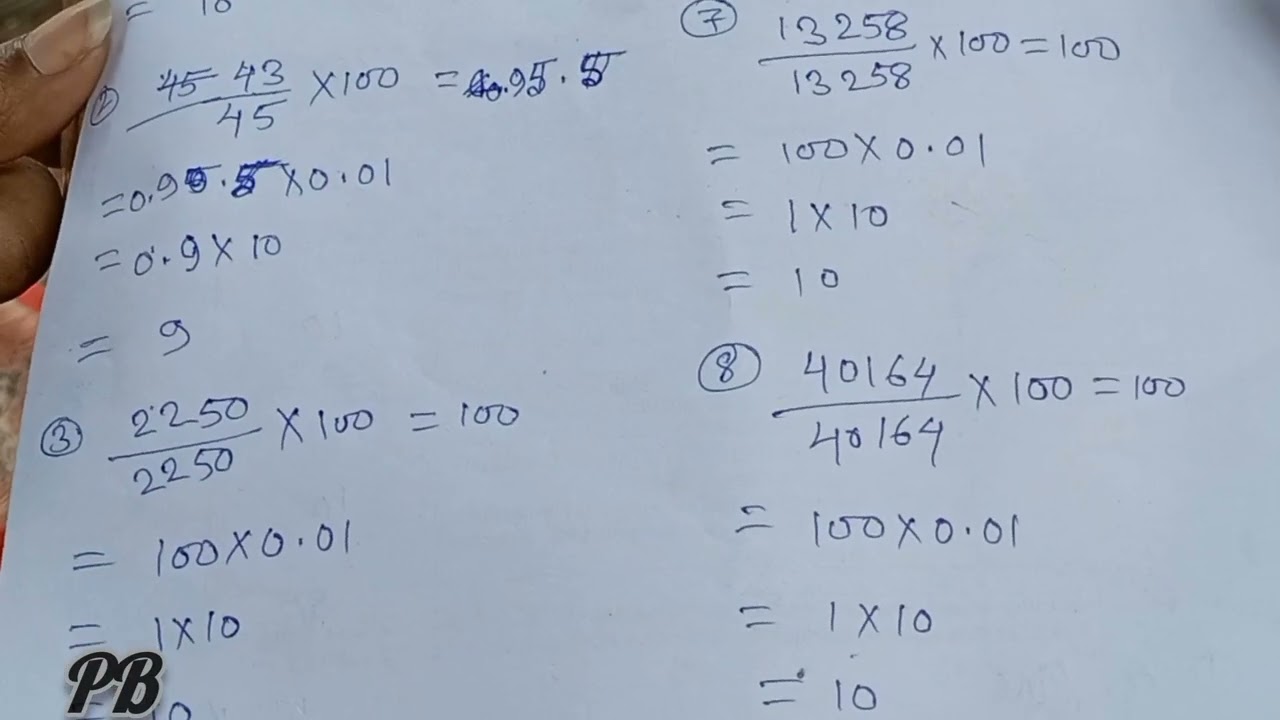 = 10
② 45 43/45 × 100 = 95.5
= 0.95.5 × 0.01
= 0.9 × 10
= 9
③ 2250/2250 × 100 = 100
= 100 × 0.01
= 1 × 10
= 10
⑦ 13258/13258 × 100 = 100
= 100 × 0.01
= 1 × 10
= 10
⑧ 40164/40164 × 100 = 100
= 100 × 0.01
= 1 × 10
= 10
PB